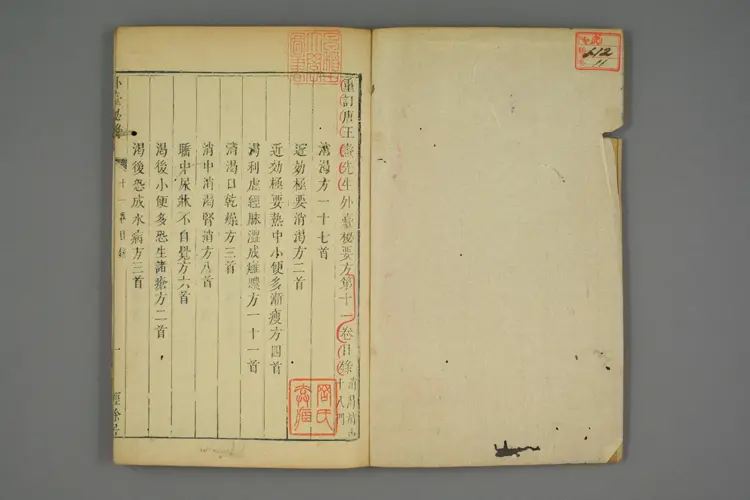 重訂唐王燾先生外臺秘要方第十一卷目錄
消渴消中
十八門
消渴方一十七首
近効極要消渴方二首
近効極要熱中小便多漸瘦方四首
渴利虛經脉澀成癰膿方一十一首
消渴口乾燥方三首
消中消渴腎消方八首
睡中尿牀不自覺方六首
渴後小便多恐生諸瘡方二首
渴後恐成水病方三首
外臺秘要
十一卷目錄
一
經餘居
612
11